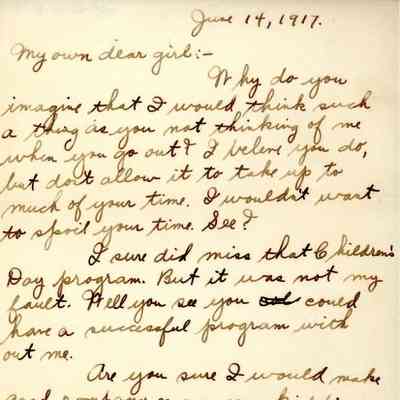 June 14, 1917.
My own dear girl:-
Why do you
imagine that I would think such
a thing as you not thinking of me
when you go out? I beleve you do,
but dont allow it to take up to
much of your time. I wouldn't want
to spoil your time. See?
I sure did miss that Children's
Day program. But it was not my
fault. Well you see you could
have a successful program with
out me.
Are you sure I would make
good company